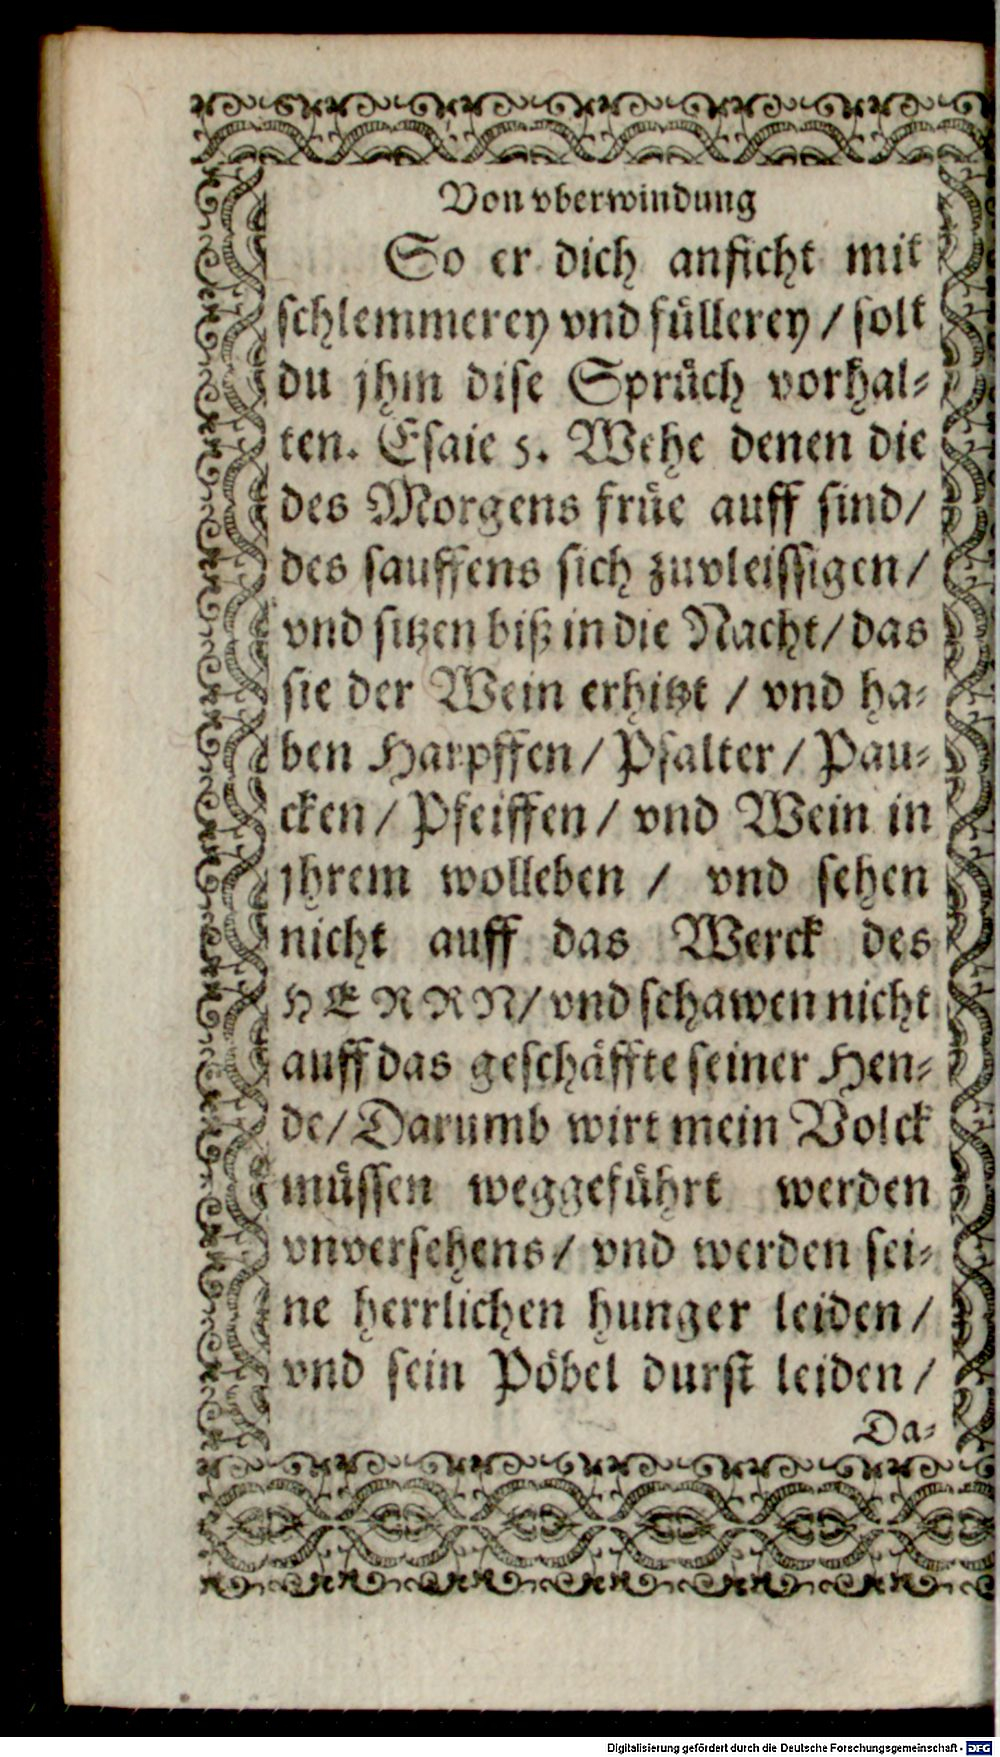 Von vberwindung
So er dich anficht mit
schlemmerey vnd füllerey / solt
du jhm dise Sprüch vorhal⸗
ten. Esaie 5. Wehe denen die
des Morgens früe auff sind/
des sauffens sich zuvleissigen/
vnd sitzen biß in die Nacht/ das
sie der Wein erhitzt / vnd ha⸗
ben Harpffen/ Psalter/ Pau⸗
cken/ Pfeiffen/ vnd Wein in
jhrem wolleben / vnd sehen
nicht auff das Werck des
HERRN/ vnd schawen nicht
auff das geschäffte seiner Hen⸗
de/ Darumb wirt mein Volck
müssen weggeführt werden
vnversehens/ vnd werden sei⸗
ne herrlichen hunger leiden/
vnd sein Pöbel durst leiden/
Da⸗
Digitalisierung gefördert durch die Deutsche Forschungsgemeinschaft - DFG